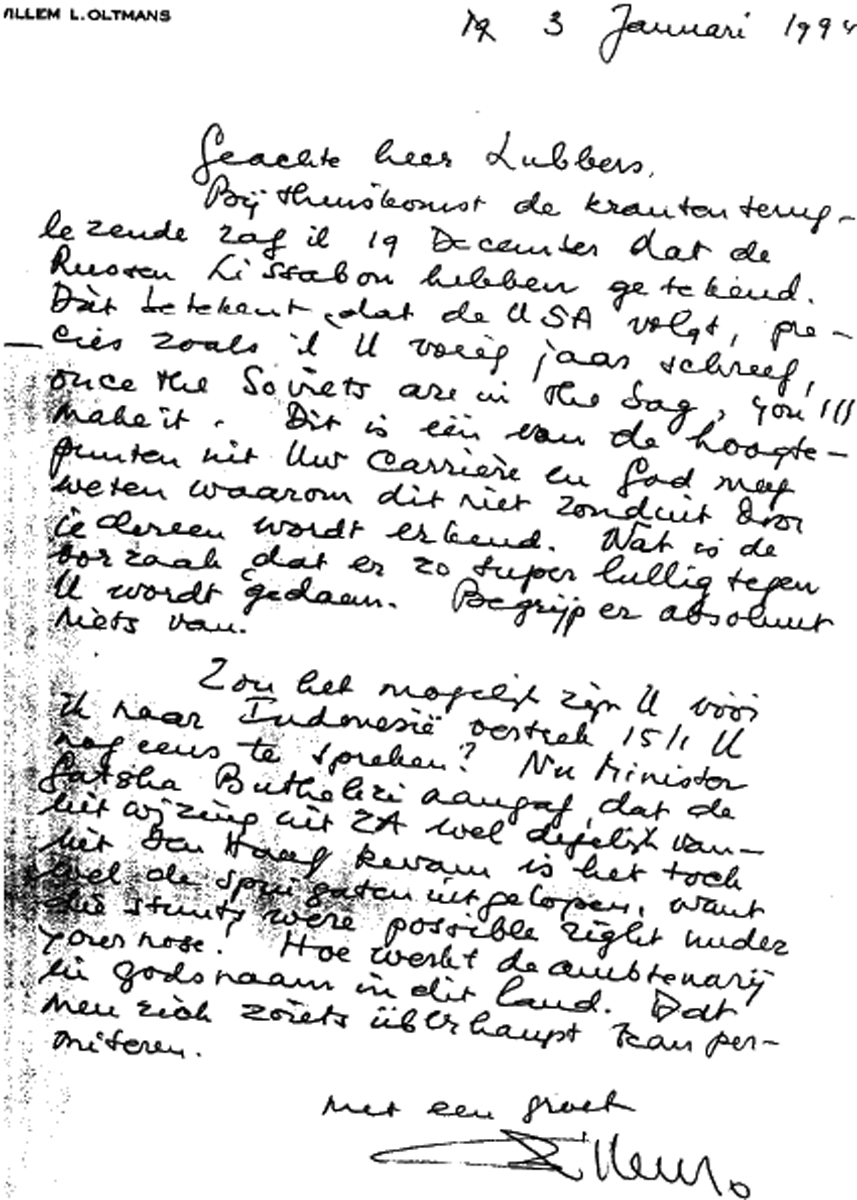 WILLEM L. OLTMANS
3 Januari 1994
Geachte heer Lubbers,
Bij thuiskomst de kranten terug-
lezende zag ik 19 December dat de
Russen Lissabon hebben getekend.
Dàt betekent, dat de USA volgt, pre-
cies zoals ik U vorig jaar schreef,
once the Soviets are in the bag, you'll
make it. Dit is één van de hoogte-
punten uit Uw carrière en God mag
weten waarom dit niet zonduit door
iedereen wordt erkend. Wat is de
oorzaak dat er zo super lullig tegen
U wordt gedaan. Begrijp er absoluut
niets van.
Zou het mogelijk zijn U vóór
ik naar Indonesië vertrek 15/1 U
nog eens te spreken? Nu Minister
Gatsha Buthelezi aangaf, dat de
uitwijzing uit ZA wel degelijk van-
uit Den Haag kwam is het toch
wel de spuigaten uitgelopen, want
die stunts were possible right under
your nose! Hoe werkt de ambtenarij
in godsnaam in dit land. Dat
men zich zoiets überhaupt kan per-
miteren.
met een groet
Willem O